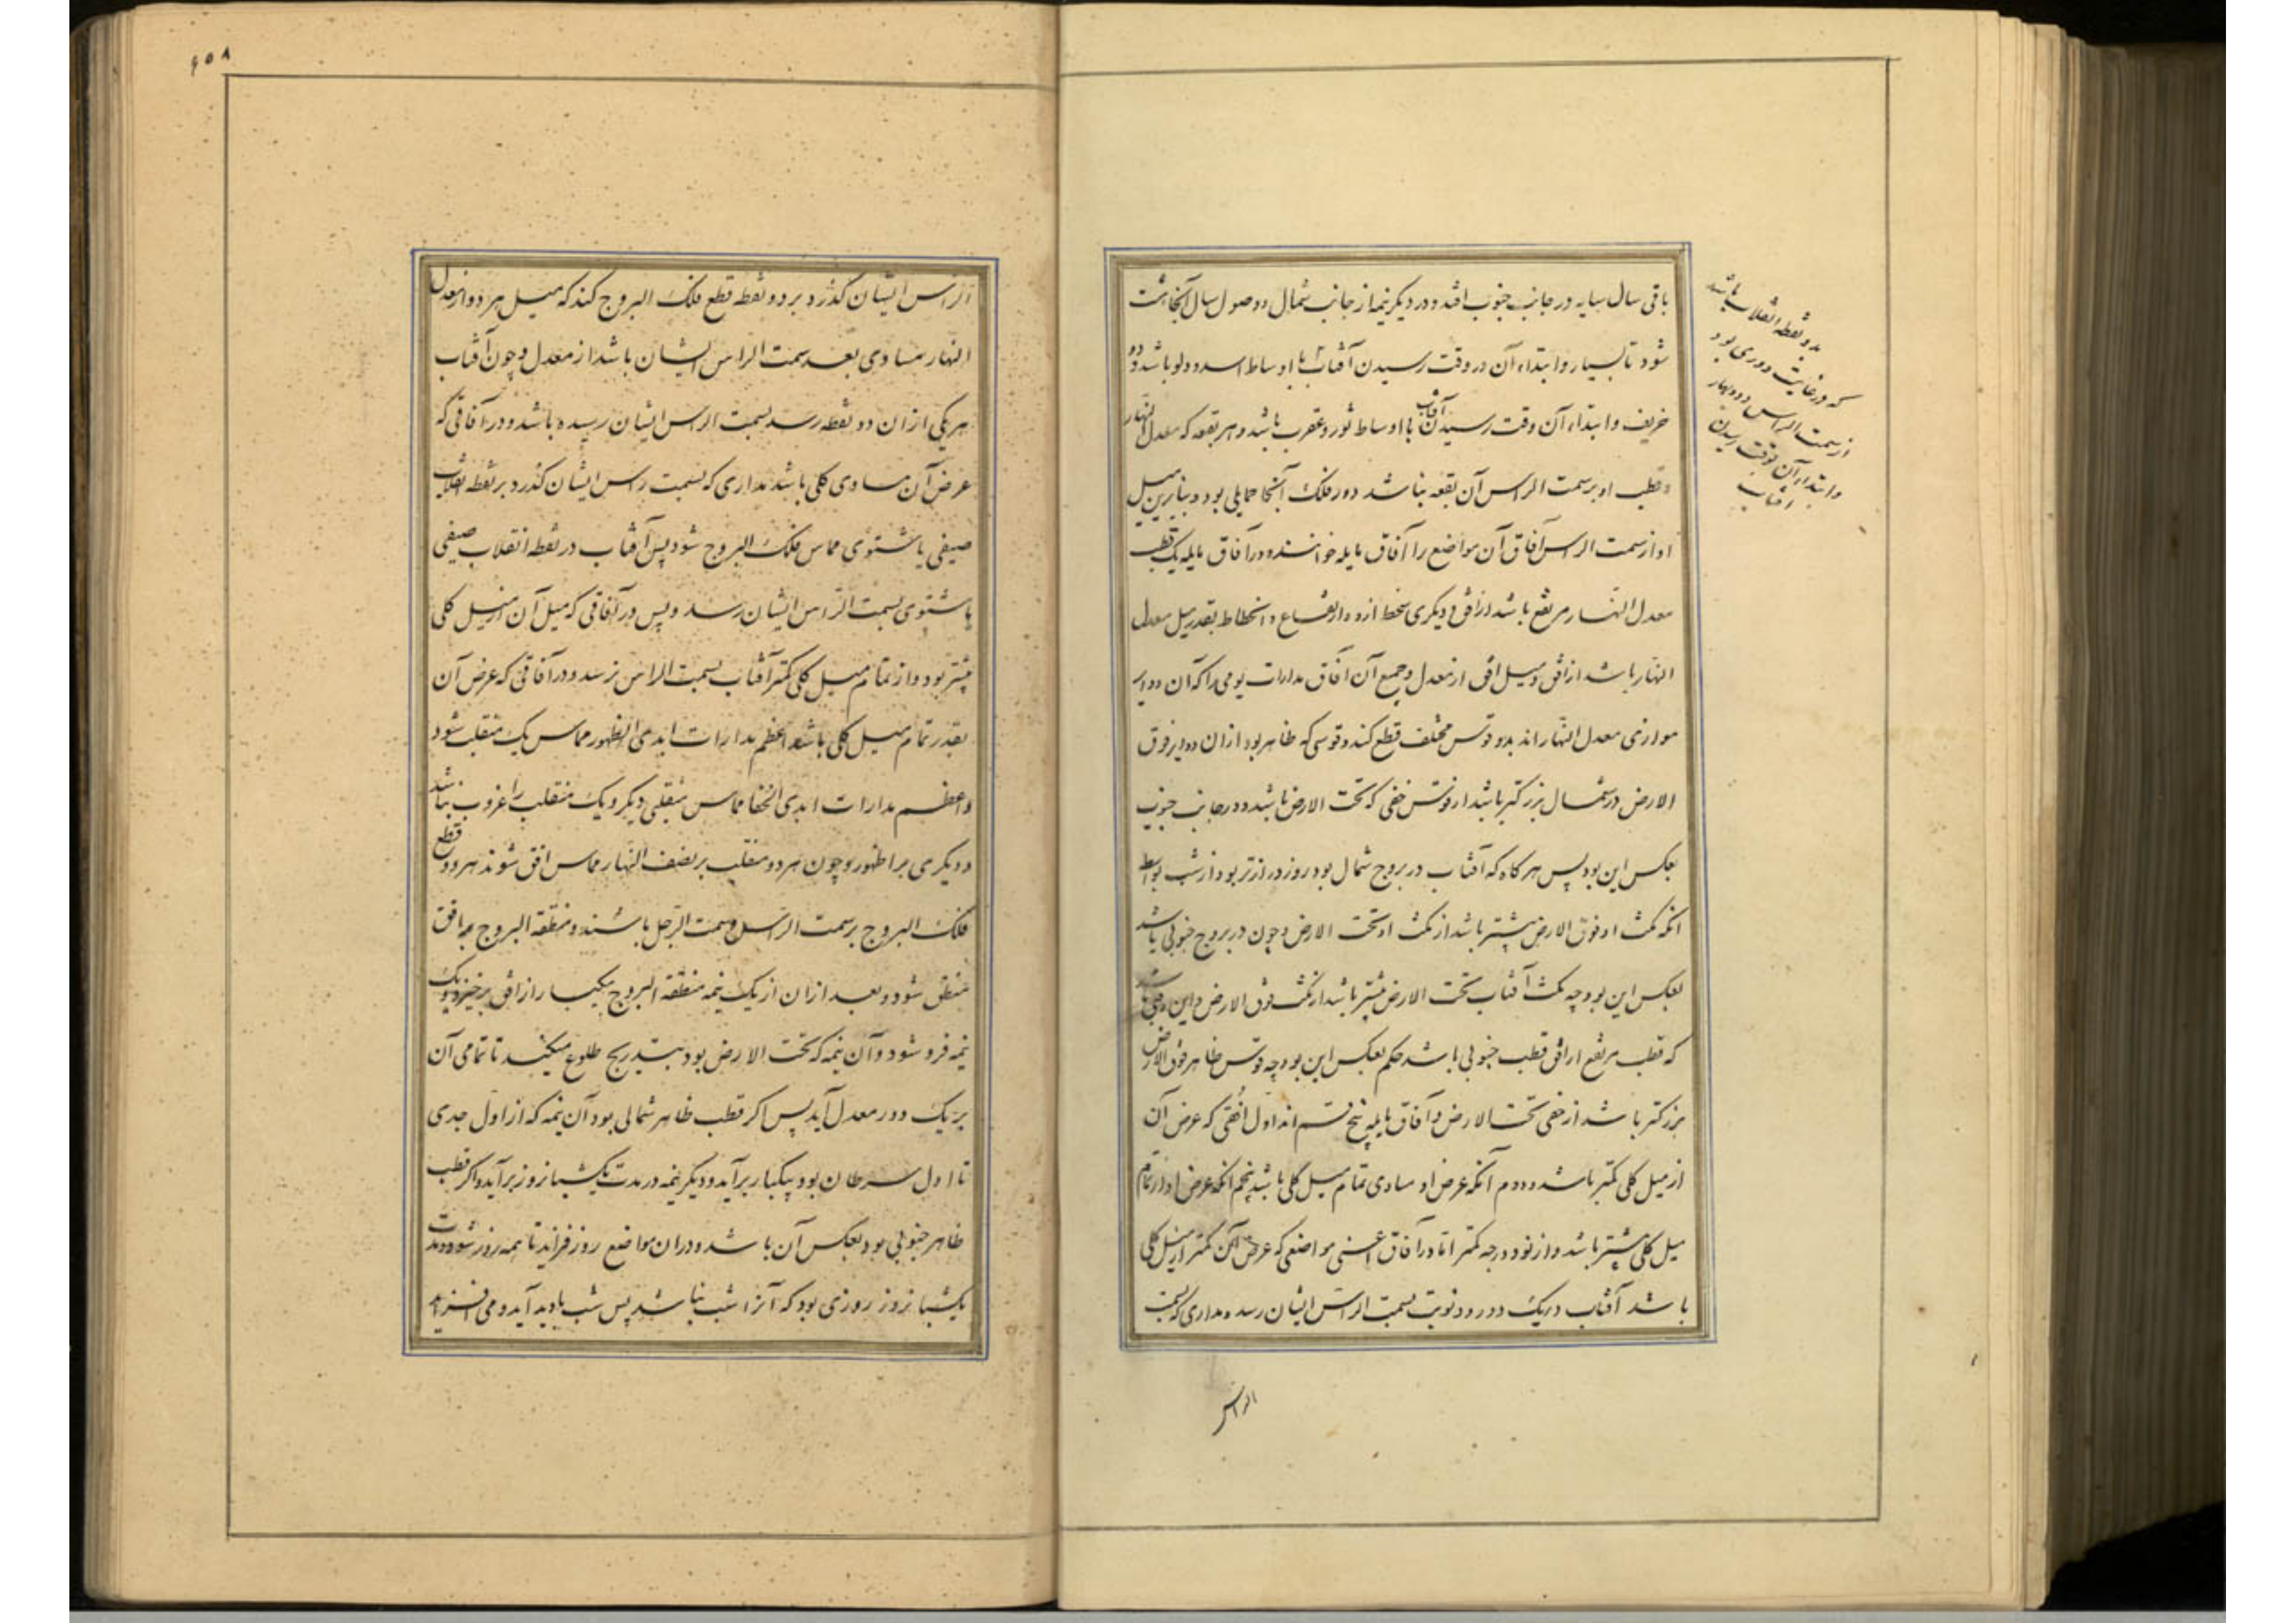 باقی سال سایه در جانب جنوب افتد و در دیگر نیمه از جانب شمال و فصول سال آنجا هشت
شود تابستان و ابتداء آن در وقت رسیدن آفتاب با اوساط اسد و دلو باشد و دو
خریف و ابتداء آن وقت رسیدن آفتاب با اوساط ثور و عقرب باشد و هر بقعه که معدل النهار
و قطب او بر سمت الراس آن بقعه نباشد دور فلک آنجا حمایلی بود و بنابرین میل
او از سمت الراس آفاق آن مواضع را آفاق مایله خوانند و در آفاق مایله یک قطب
معدل النهار مرتفع باشد از افق و دیگری منحط ازو و ارتفاع و انحطاط بقدر میل معدل
النهار باشد از افق و میل افق از معدل و جمیع آن آفاق مدارات یومی را که آن دوایر
موازی معدل النهار اند بدو قوس مختلف قطع کند و قوسی که ظاهر بود ازان دوایر فوق
الارض در شمال بزرگتر باشد از قوس خفی که تحت الارض باشد و در جانب جنوب
بعکس این بود پس هرگاه که آفتاب در بروج شمال بود روز درازتر بود از شب بواسطه
آنکه مکث او فوق الارض بیشتر باشد از مکث او تحت الارض و چون در بروج جنوبی باشد
بعکس این بود چه مکث آفتاب تحت الارض بیشتر باشد از مکث فوق الارض و این وقتی باشد
که قطب مرتفع از افق قطب جنوبی باشد حکم بعکس این بود چه قوس ظاهر فوق الارض
بزرگتر باشد از خفی تحت الارض و آفاق مایله پنج قسم اند اول افقی که عرض آن
از میل کلی کمتر باشد و دوم آنکه عرض او مساوی تمام میل کلی باشد پنجم آنکه عرض او از تمام
میل کلی بیشتر باشد و از نود درجه کمتر اما در آفاق اعنی مواضعی که عرض آن کمتر از میل کلی
باشد آفتاب در یک دور دو نوبت بسمت الراس ایشان رسد و مداری که بسمت
بدو نقطه انقلاب باشد
که در غایت دوری بود
از سمت الراس و دو بهار
و ابتداء آن بوقت رسیدن
آفتاب
الراس
۶۰۸
الراس ایشان گذرد بر دو نقطه قطع فلک البروج کند که میل هر دو از معدل
النهار مساوی بعد سمت الراس ایشان باشد از معدل و چون آفتاب
بهر یکی ازان دو نقطه رسد بسمت الراس ایشان رسیده باشد و در آفاقی که
عرض آن مساوی کلی باشد مداری که بسمت راس ایشان گذرد بر نقطه انقلاب
صیفی یا شتوی مماس فلک البروج شود پس آفتاب در نقطه انقلاب صیفی
یا شتوی بسمت الراس ایشان رسد و پس در آفاقی که میل آن از میل کلی
بیشتر بود و از تمام میل کلی کمتر آفتاب بسمت الراس نرسد و در آفاقی که عرض آن
بقدر تمام میل کلی باشد اعظم مدارات ابدی الظهور مماس یک منقلب شود
و اعظم مدارات ابدی الخفا مماس منقلبی دیگر و یک منقلب را غروب نباشد
و دیگری را ظهور و چون هر دو منقلب بر نصف النهار مماس افق شوند هر دو قطع
فلک البروج بر سمت الراس و سمت الرجل باشند و منطقه البروج بافق
منطبق شود و بعد ازان از یک نیمه منطقه البروج بیکبار از افق برخیزد و یک
نیمه فرو شود و آن نیمه که تحت الارض بود بتدریج طلوع میکند تا تمامی آن
بر یک دور معدل آید پس اگر قطب ظاهر شمالی بود آن نیمه که از اول جدی
تا اول سرطان بود بیکبار برآید و دیگر نیمه در مدت یکشبانروز برآید و اگر قطب
ظاهر جنوبی بود بعکس آن باشد و دران مواضع روز فزاید تا همه روز شود و مدت
یکشبانروز روزی بود که آنرا شب نباشد پس شب بادید آید و می افزاید